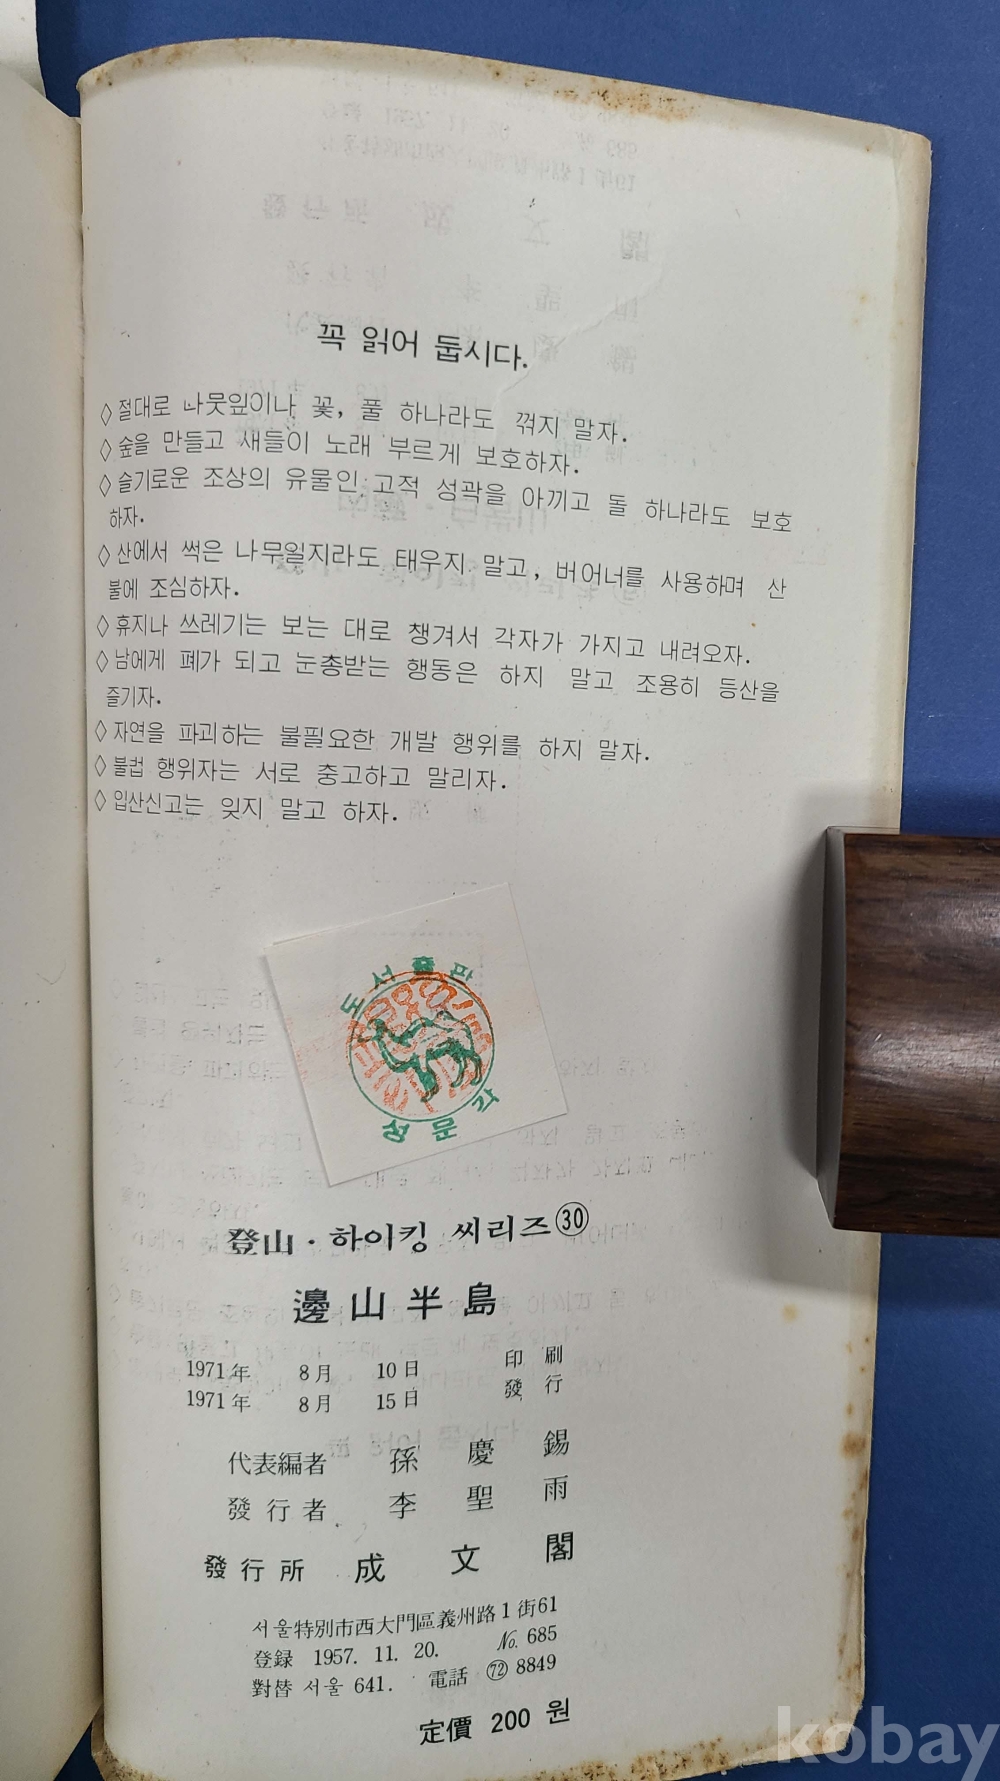 꼭 읽어 둡시다.
◇절대로 나뭇잎이나 꽃, 풀 하나라도 꺾지 말자.
◇숲을 만들고 새들이 노래 부르게 보호하자.
◇슬기로운 조상의 유물인 고적 성곽을 아끼고 돌 하나라도 보호
하자.
◇산에서 썩은 나무윌지라도 태우지 말고, 버어너를 사용하며 산
불에 조심하자.
◇휴지나 쓰레기는 보는 대로 챙겨서 각자가 가지고 내려오자.
◇남에게 폐가 되고 눈총받는 행동은 하지 말고 조용히 등산을
즐기자.
◇자연을 파괴하는 불필요한 개발 행위를 하지 말자.
◇불법 행위자는 서로 충고하고 말리자.
◇입산신고는 잊지 말고 하자.
도서출판
성문각
登山·하이킹 씨리즈㉚
邊山半島
1971年 8月 10日 印刷
1971年 8月 15日 發行
代表編者 孫慶錫
發行者 李聖雨
發行所 成文閣
서울特別市西大門區義州路1街61
登録 1957. 11. 20. No. 685
對替 서울 641. 電話 (72) 8849
定價 200 원
kobay